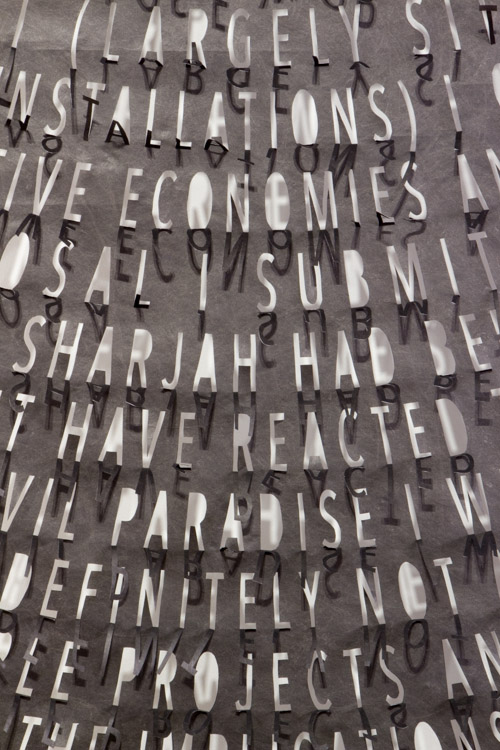 (LARGELY SI
NSTALLATIONS) I
TIVE ECONOMIES AN
OSAL I SUBMIT
SHARJAH HAD BE
T HAVE REACTED
VIL PARADISE I W
DEFINITELY NOT
REE PROJECTS AN
THE IMPLICATIONS